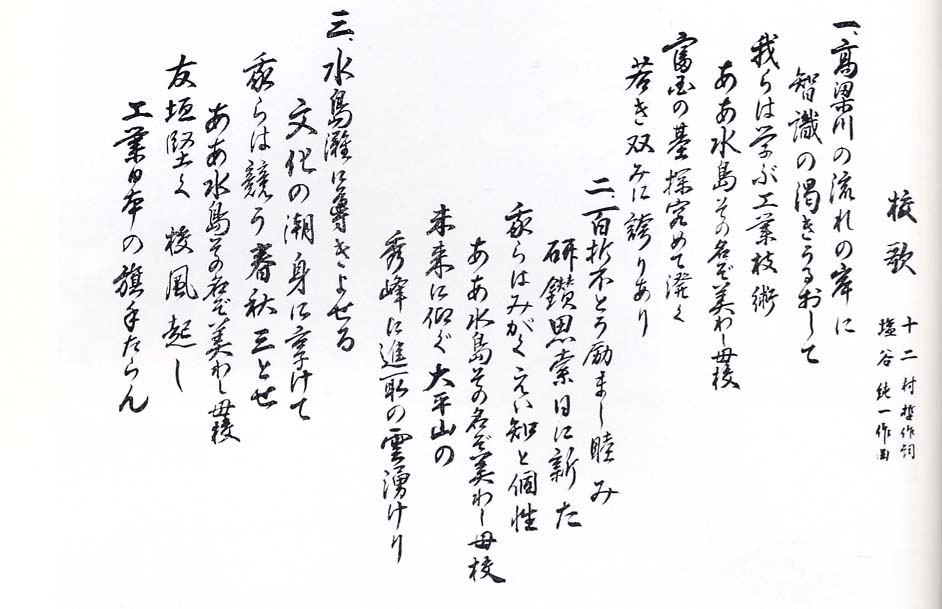 校歌
十二村哲作詞
塩谷純一作曲
一、高梁川の流れの岸に
智識の渇きうるおして
我らは学ぶ工業技術
ああ水島その名ぞ美わし母校
富国の基探究めて滾く
若き双みに誇りあり
二、百折不とう励まし睦み
研鑚思索日に新た
我らはみがくえい知と個性
ああ水島その名ぞ美わし母校
未来に仰ぐ大平山の
秀峰に進取の雲湧けり
三、水島灘に寄きよせる
文化の潮身に享けて
我らは競う春秋三とせ
ああ水島その名ぞ美わし母校
友垣堅く校風起し
工業日本の旗手たらん